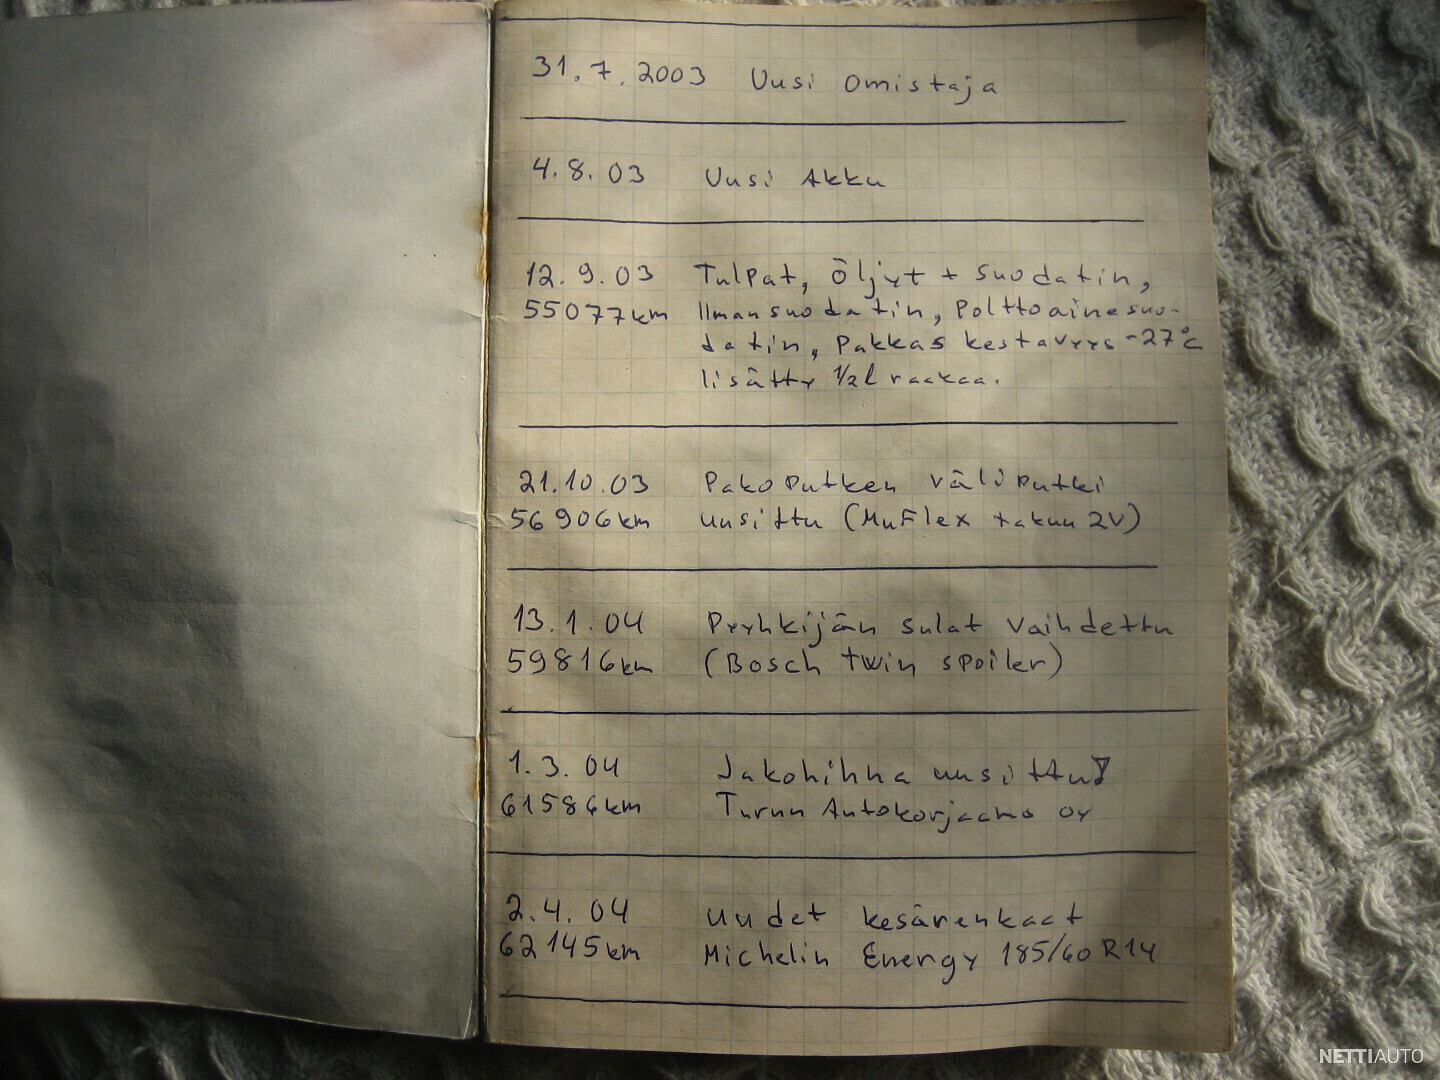 31.7.2003 Uusi omistaja
4.8.03 Uusi Akku
12.9.03 Tulpat, öljyt + suodatin,
55077km Ilmansuodatin, Polttoainesuo-
datin, Pakkas kestavyys -27°c
lisätty 1/2l raakaa.
21.10.03 Pakoputken väliputki
56906km uusittu (MuFlex takuu 2V)
13.1.04 Pyyhkijän sulat vaihdettu
59816km (Bosch twin spoiler)
1.3.04 Jakohihna uusittu
61586km Turun Autokorjaamo oy
2.4.04 uudet kesärenkaat
62145km Michelin Energy 185/60 R14
NETTIAUTO